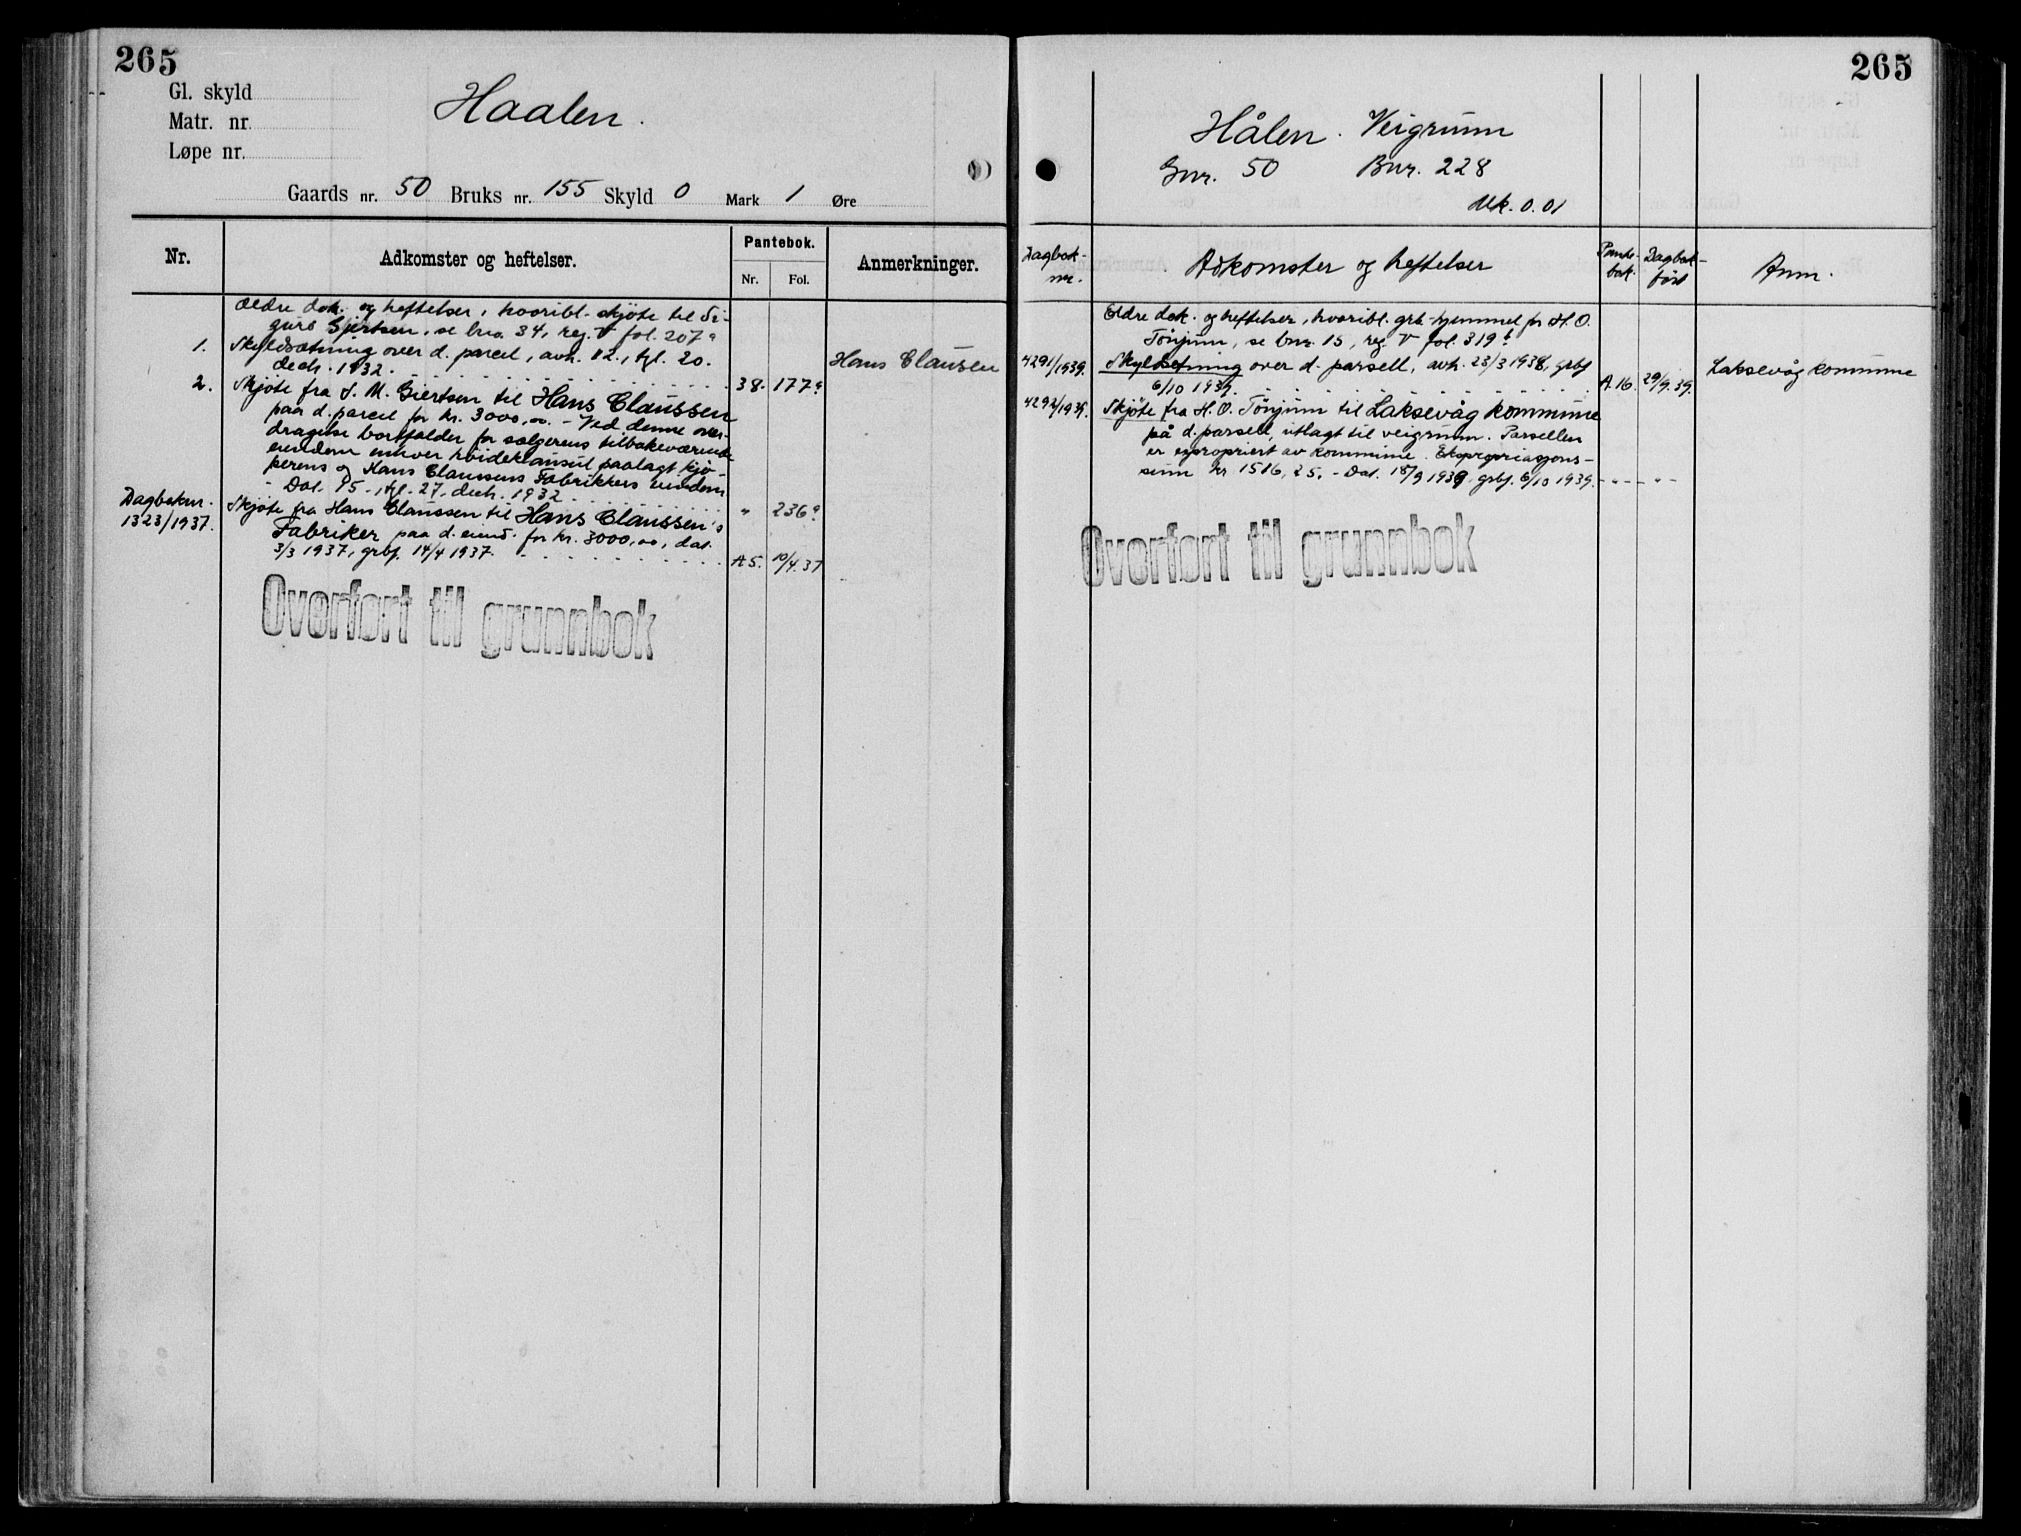 265
Gl. skyld
Matr. nr.
Løpe nr.
Haalen.
Gaards nr. 50 Bruks nr. 155 Skyld 0 Mark 1 Øre
Nr.
Adkomster og heftelser.
Pantebok.
Nr.
Fol.
Anmerkninger.
Ældre dok. og heftelser, hvoribl. skjøte til Si-
gurd Gjertsen, se bno. 34, reg. V fol. 207a
1. Skyldsætning over d. parcel, avh. 12., tgl. 20.
decb. 1932. 38. 177a Hans Clausen
2. Skjøte fra S. M. Giertsen til Hans Claussen
paa d. parcel for kr. 3000,00. - Ved denne over-
dragelse bortfalder for sælgerens tilbakeværende
eiendom enhver hvideklausul paalagt kjø-
perens og Hans Claussens Fabrikkers eiendom
- Dat. 15., tgl. 27. decb. 1932 " 236a
Dagboknr.
1323/1937. Skjøte fra Hans Claussen til Hans Claussen's
Fabriker paa d. eiend. for kr. 3000,00, dat.
3/3 1937, grbf. 14/4 1937. A5. 10/4.37
Overført til grunnbok
265
Hålen. Veigrunn
Gnr. 50 Bnr. 228
Mk. 0.01
Dagbok-
nr.
Adkomster og heftelser
Pante-
bok.
Dagbok-
ført
Anm.
Eldre dok. og heftelser, hvoribl. grb.-hjemmel for H. O.
Tönjum, se bnr. 15, reg. V fol. 319b
4291/1939. Skyldsetning over d. parsell, avh. 23/3 1938, grbf
6/10 1939. A.16. 29/9.39. Laksevåg kommune
4292/1939. Skjöte fra H. O. Tönjum til Laksevåg kommune
på d. parsell, utlagt til veigrunn. Parsellen
er expropriert av kommune. Ekspropriasjons-
sum kr. 1516,25. - Dat. 18/9 1939, grbf. 6/10 1939. - " - - " -
Overført til grunnbok